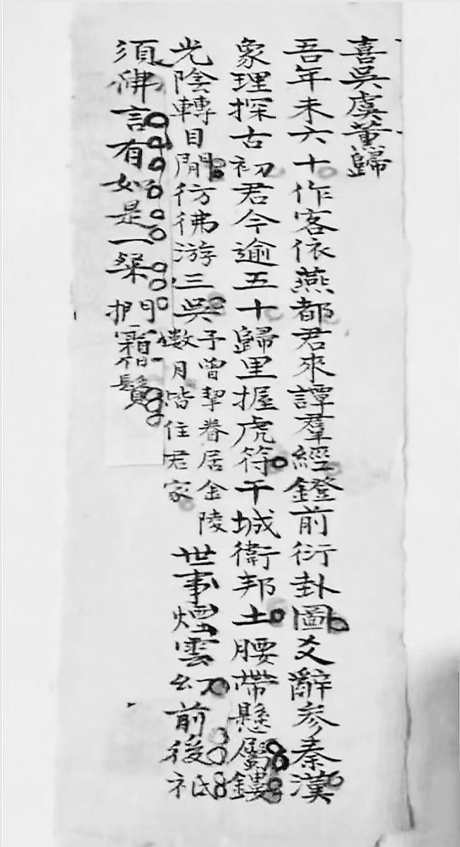 喜吳虞薰歸
吾年未六十作客依燕都君來譚羣經鐙前衍卦圖爻辭參秦漢
象理探古初君今逾五十歸里握虎符干城衛邦土腰帶懸屬鏤
光陰轉目間彷彿游三吳子曾挈眷居金陵數月皆住君家世事煙雲幻前後祇
須佛言有如是一粲捫霜鬢